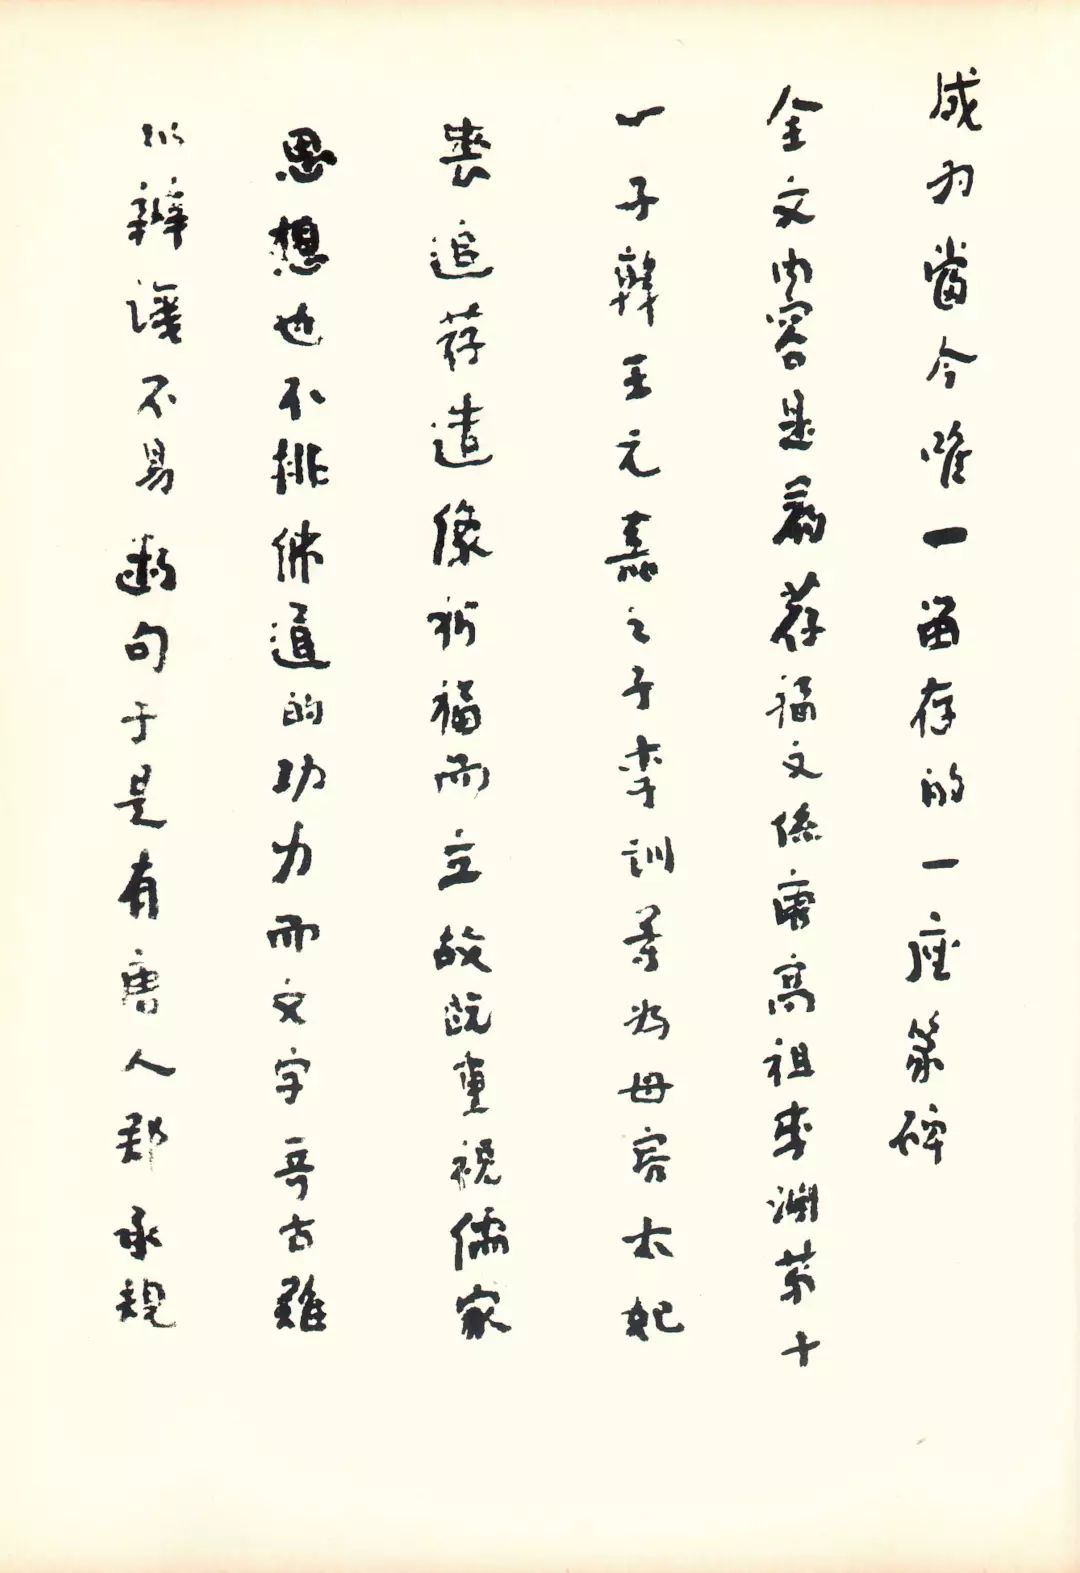 成为當今唯一留存的一座篆碑
全文内容是爲荐福文係唐高祖李渊苐十
一子韓王元嘉之子李訓等为母房太妃
喪追荐遣像祈福而立故既重視儒家
思想也不排佛道的功力而文字奇古難
以辨識不易断句于是有唐人郑承規